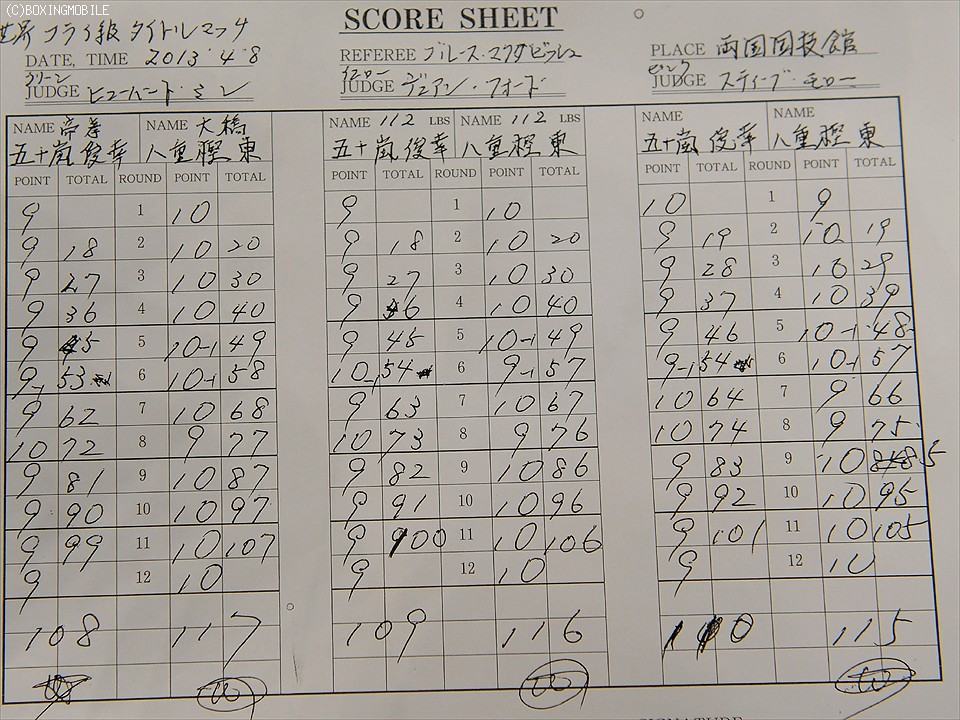 (C)BOXINGMOBILE
SCORE SHEET
世界フライ級タイトルマッチ
DATE, TIME 2013 4 8 REFEREE ブルース・マクタビッシュ PLACE 両国国技館
グリーン イエロー ピンク
JUDGE ヒューバート・ミン JUDGE デュアン・フォード JUDGE スティーブ・モロー
NAME 帝拳 NAME 大橋 NAME 112 LBS NAME 112 LBS NAME NAME
五十嵐俊幸 八重樫東 五十嵐俊幸 八重樫東 五十嵐俊幸 八重樫東
POINT TOTAL ROUND POINT TOTAL POINT TOTAL ROUND POINT TOTAL POINT TOTAL ROUND POINT TOTAL
9 1 10 9 1 10 10 1 9
9 18 2 10 20 9 18 2 10 20 9 19 2 10 19
9 27 3 10 30 9 27 3 10 30 9 28 3 10 29
9 36 4 10 40 9 36 4 10 40 9 37 4 10 39
9 45 5 10-1 49 9 45 5 10-1 49 9 46 5 10-1 48
9-1 53 6 10-1 58 10-1 54 6 9-1 57 9-1 54 6 10-1 57
9 62 7 10 68 9 63 7 10 67 10 64 7 9 66
10 72 8 9 77 10 73 8 9 76 10 74 8 9 75
9 81 9 10 87 9 82 9 10 86 9 83 9 10 85
9 90 10 10 97 9 91 10 10 96 9 92 10 10 95
9 99 11 10 107 9 100 11 10 106 9 101 11 10 105
9 12 10 9 12 10 9 12 10
108 117 109 116 110 115
W W W
SIGNATURE